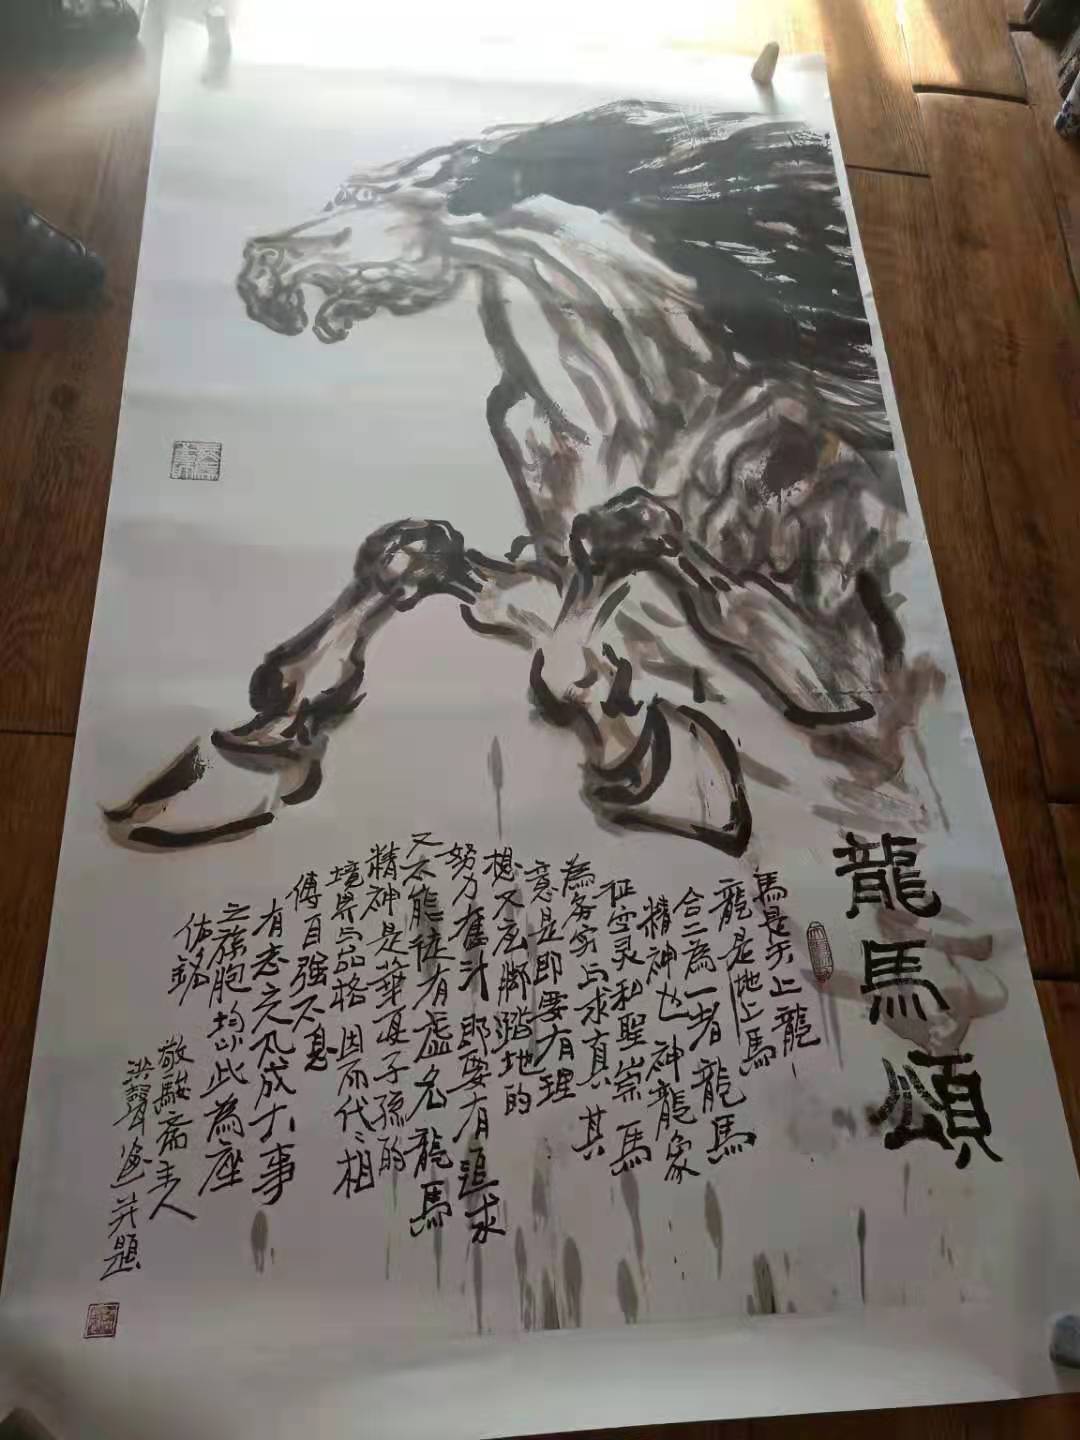 龍馬頌
馬是天上龍
龍是地上馬
合二為一者龍馬
精神也神龍象
征空灵和聖崇馬
為务实与求真其
意是即要有理
想又应脚踏地的
努力奮斗即要有追求
又不能徒有虛名龍馬
精神是華夏子孫的
境界与品格因而代〻相
傳自強不息
有志之凡成大事
之族胞均以此為座
佑銘
敬駿斋主人
洪聲画并題